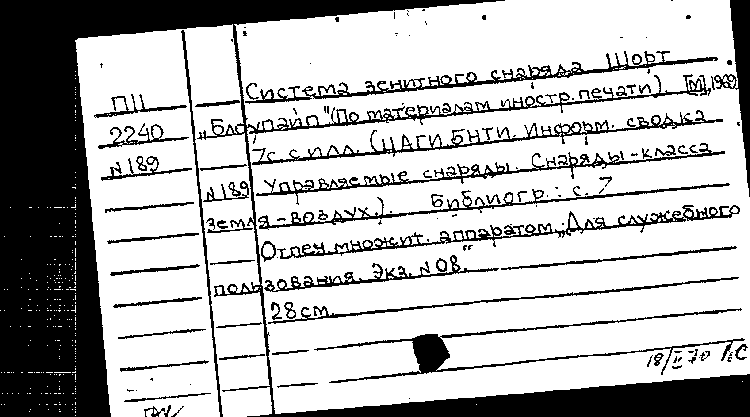 Система зенитного снаряда Шорт
П11
2240 „Блоупайп" (По материалам иностр. печати). [М], 1969
N189 7с. с илл. (ЦАГИ. БНТИ. Информ. сводка
N189 Управляемые снаряды. Снаряды-класса
земля-воздух.). Библиогр.: с. 7
Отпеч. множит. аппаратом. „Для служебного
пользования. Экз. N 08."
28 см.
18/II 70